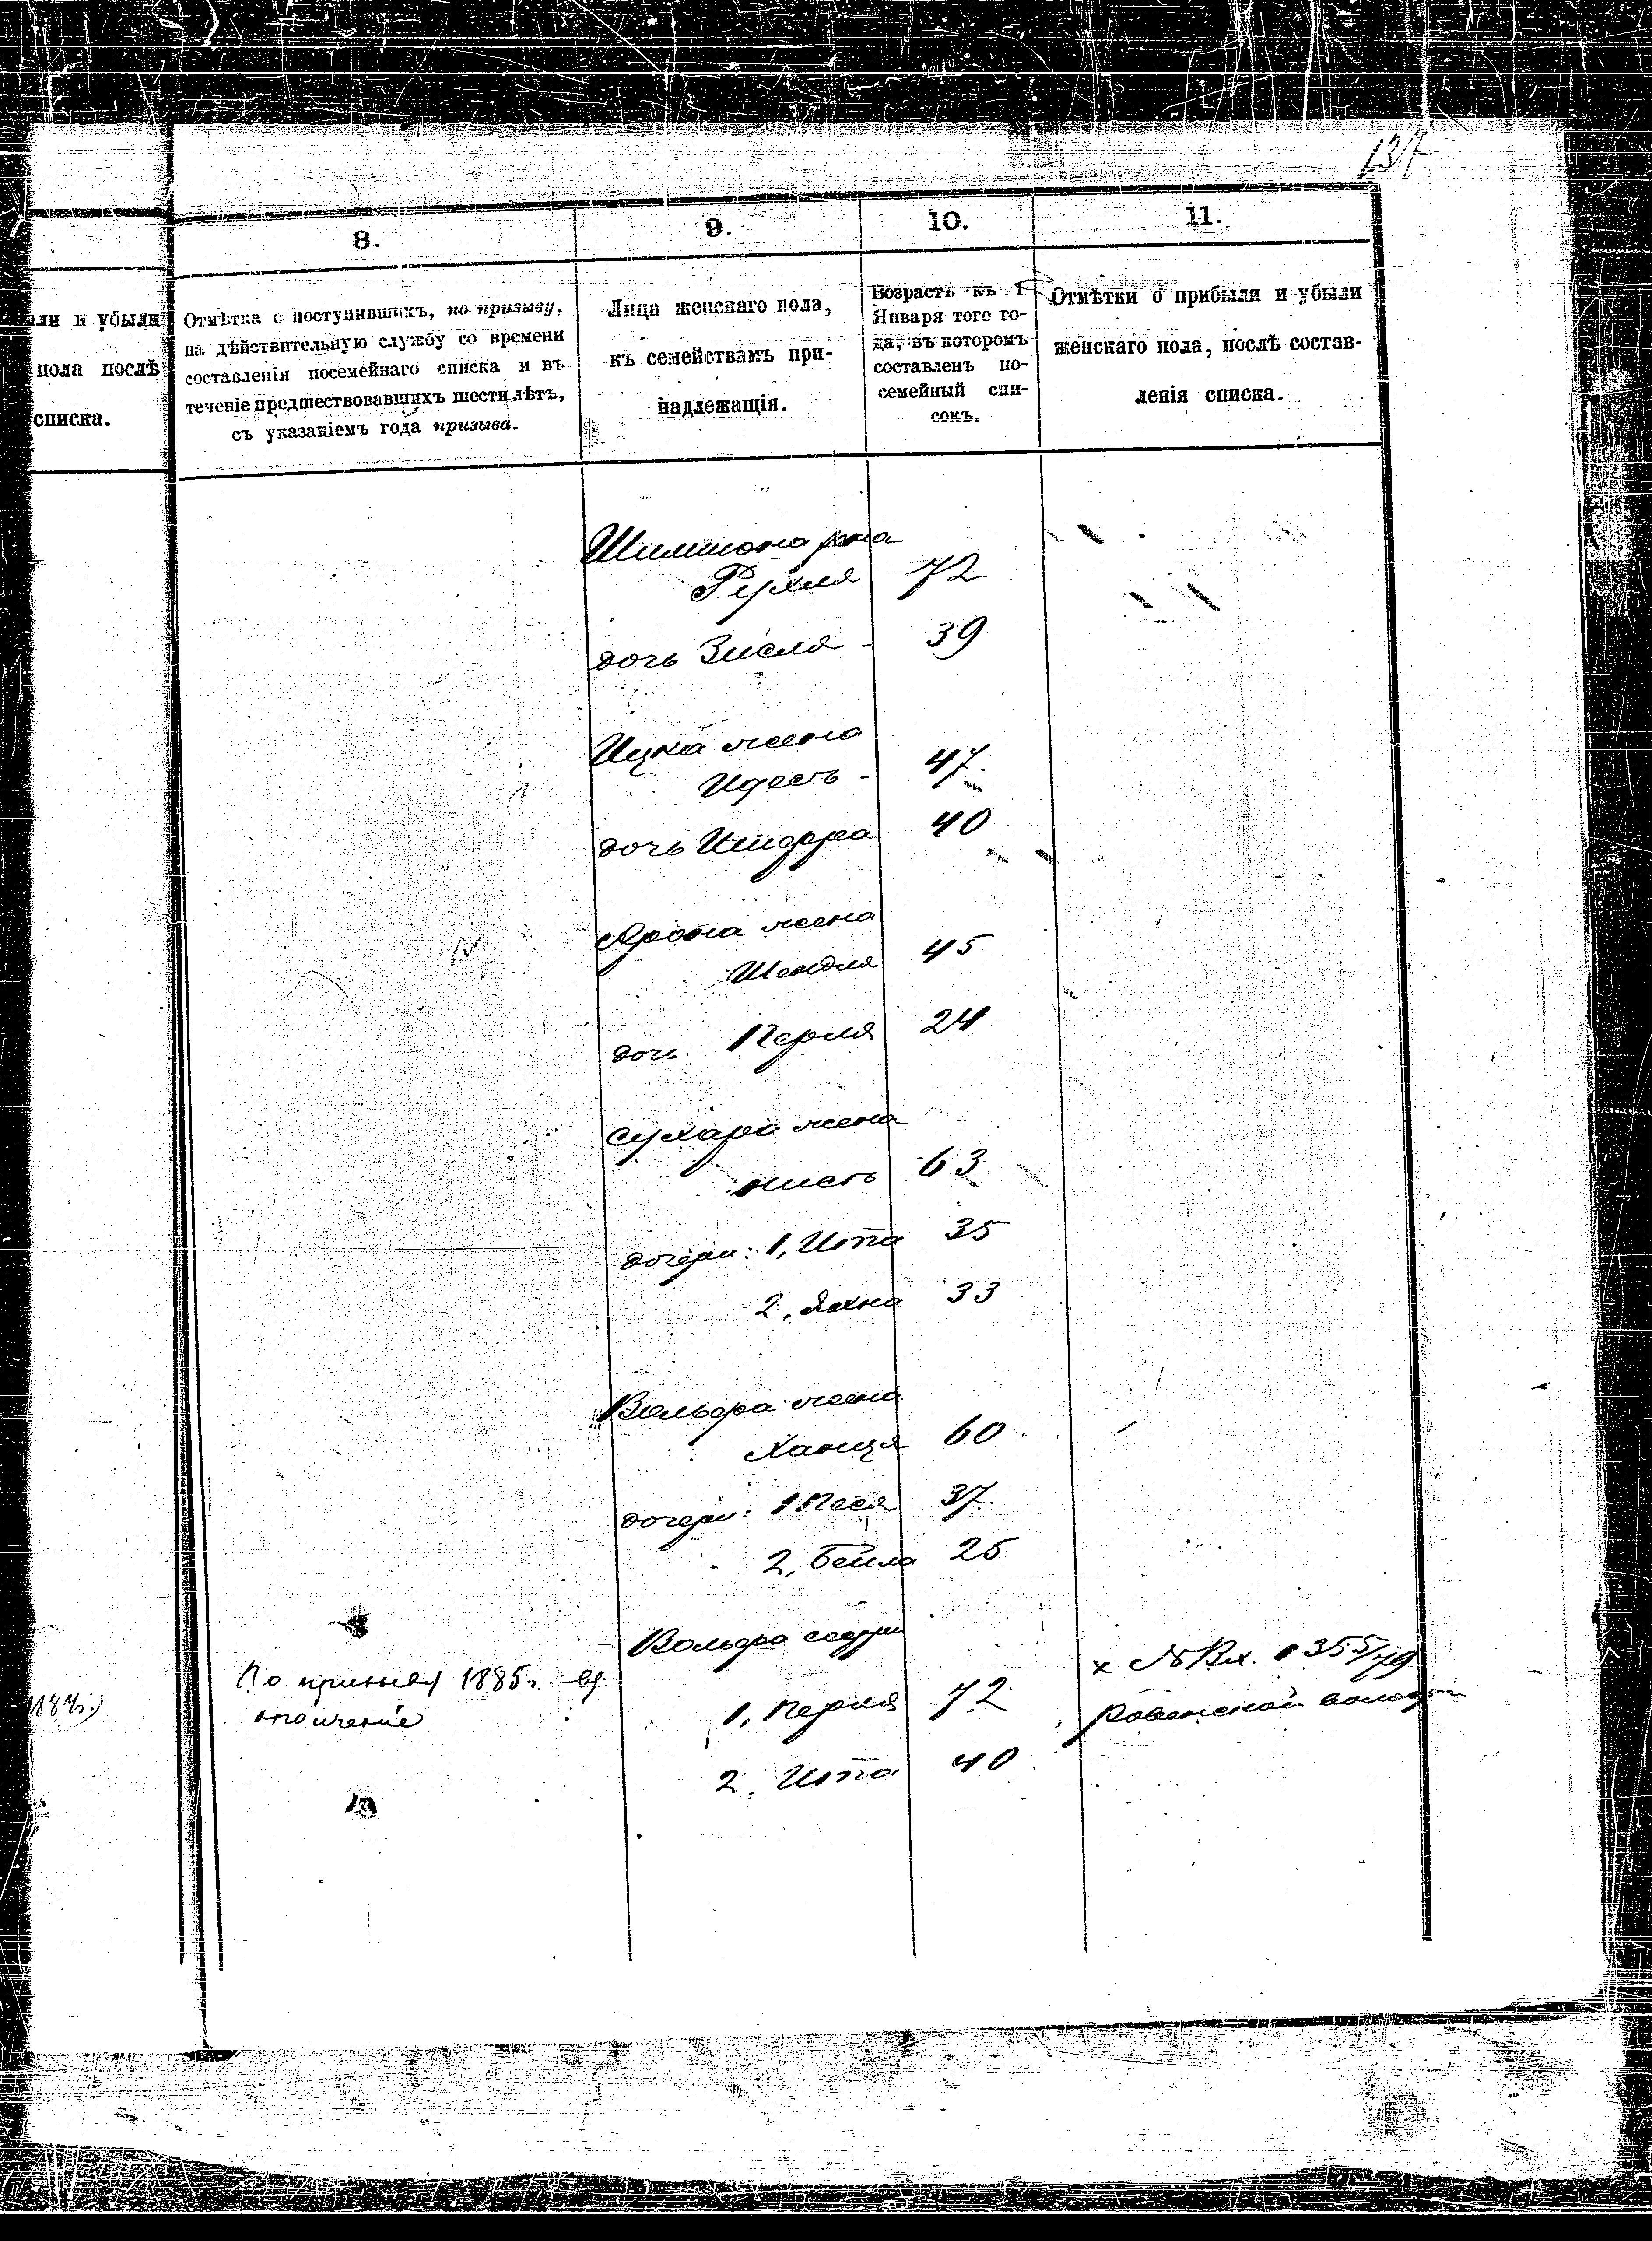 137
8.
9.
10.
11.
ли и убыли
пола послѣ
списка.
Отмѣтка о поступившихъ, по призыву,
на дѣйствительную службу со времени
составленія посемейнаго списка и въ
теченіе предшествовавшихъ шести лѣтъ,
съ указаніемъ года призыва.
Лица женскаго пола,
къ семействамъ при-
надлежащія.
Возрастъ къ 1
Января того го-
да, въ которомъ
составленъ по-
семейный спи-
сокъ.
Отмѣтки о прибыли и убыли
женскаго пола, послѣ состав-
ленія списка.
Шимшона жена
Рухля 72
дочь Зисля - 39
Ицка жена
Идесь - 47
дочь 40
Арона жена
Шендля 45
дочь Перля 24
жена
63
дочери: 1, Ита 35
2, Яхна 33
Вольфа жена
Ханця 60
дочери: 1 Песя 37
2, Бейла 25
Вольфа сестры
1, Перля 72
2, Ита 40
По призыву 1885 г. въ
ополченіе
х № Вх. 355/79
Ровенской